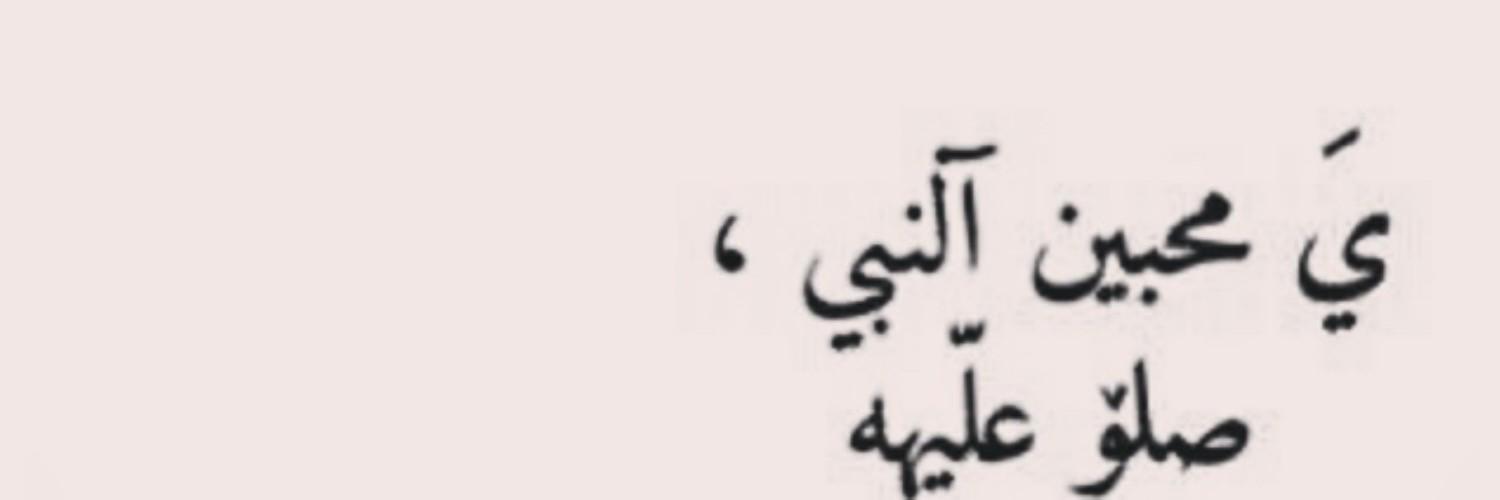 يَ محبين آلنبي ،
صلۆ علّيهه